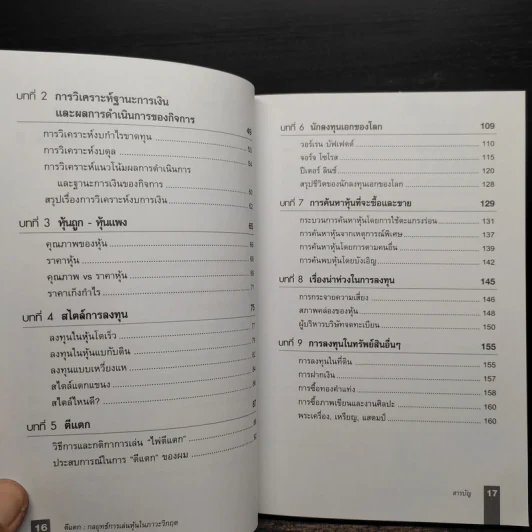 บทที่ 2 การวิเคราะห์ฐานะการเงิน
และผลการดำเนินการของกิจการ
การวิเคราะห์งบกำไรขาดทุน
การวิเคราะห์งบดุล
การวิเคราะห์แนวโน้มผลการดำเนินการ
และฐานะการเงินของกิจการ
สรุปเรื่องการวิเคราะห์งบการเงิน
บทที่ 3 หุ้นถูก - หุ้นแพง 65
คุณภาพของหุ้น
ราคาหุ้น
คุณภาพ vs ราคาหุ้น
ราคาเก็งกำไร
บทที่ 4 สไตล์การลงทุน 75
ลงทุนในหุ้นโตเร็ว
ลงทุนในหุ้นแบกับดิน
ลงทุนแบบเหวี่ยงแห
สไตล์แตกแขนง
สไตล์ไหนดี?
บทที่ 5 ตีแตก
วิธีการและกติกาการเล่น "ไพ่ตีแตก"
ประสบการณ์ในการ "ตีแตก" ของผม
16 ตีแตก : กลยุทธ์การเล่นหุ้นในภาวะวิกฤต
บทที่ 6 นักลงทุนเอกของโลก 109
วอร์เรน บัฟเฟตต์ 110
จอร์จ โซโรส 115
ปีเตอร์ ลินช์ 120
สรุปชีวิตของนักลงทุนเอกของโลก 128
บทที่ 7 การค้นหาหุ้นที่จะซื้อและขาย 129
กระบวนการค้นหาหุ้นโดยการใช้ตะแกรงร่อน 131
การค้นหาหุ้นจากเหตุการณ์พิเศษ 137
การค้นหาหุ้นโดยการตามคนอื่น 139
การค้นพบหุ้นโดยบังเอิญ 142
บทที่ 8 เรื่องน่าห่วงในการลงทุน 145
การกระจายความเสี่ยง 146
สภาพคล่องของหุ้น 148
ผู้บริหารบริษัทจดทะเบียน 150
บทที่ 9 การลงทุนในทรัพย์สินอื่นๆ 155
การลงทุนในที่ดิน 155
การฝากเงิน 157
การซื้อทองคำแท่ง 158
การซื้อภาพเขียนและงานศิลปะ 160
พระเครื่อง, เหรียญ, แสตมป์ 160
สารบัญ 17